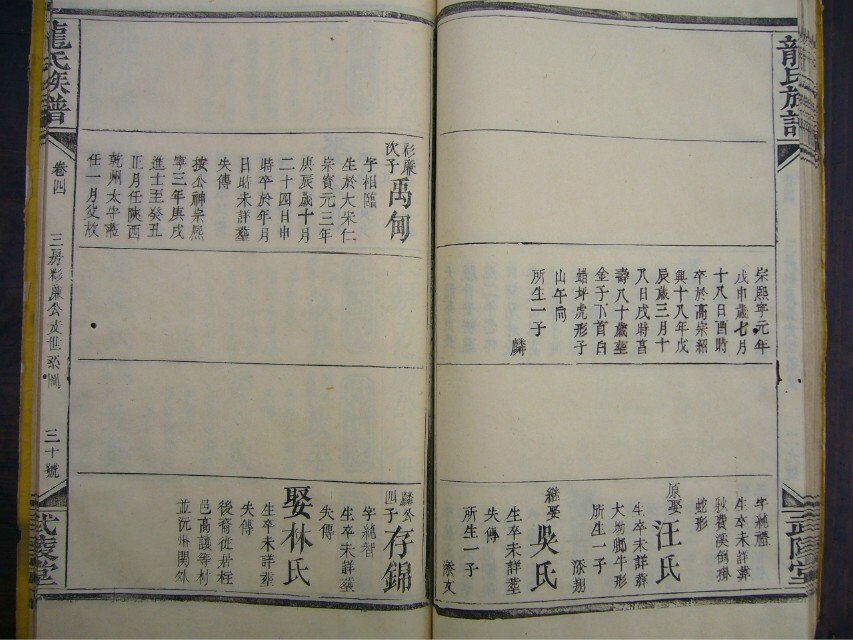 龍氏族譜
宗熙寧元年
戊申歲七月
十八日酉時
卒於高宗紹
興十八年戊
辰歲三月十
八日戌時
壽八十歲塟
金子下首白
蜡坪虎形子
山午向
所生一子
麟
生卒未詳塟
蛇形
原娶汪氏
生卒未詳塟
大坳腳牛形
所生一子
添朝
継娶吳氏
生卒未詳塟
失傳
所生一子
添文
武陵堂
彩廉
次子
禹甸
字相臨
生於大宋仁
宗寳元三年
庚辰歲十月
二十四日申
時卒於年月
日時未詳塟
失傳
按公神宗熙
寧三年庚戌
進士至癸丑
正月任陝西
乾州太守蒞
任一月交故
麟公
四子
存錦
字純智
生卒未詳塟
失傳
娶林氏
生卒未詳塟
失傳
後裔從丹桎
邑高護等村
並沅州関外
龍氏族譜
卷四
三房彩廉公支世系圖
三十號
武陵堂